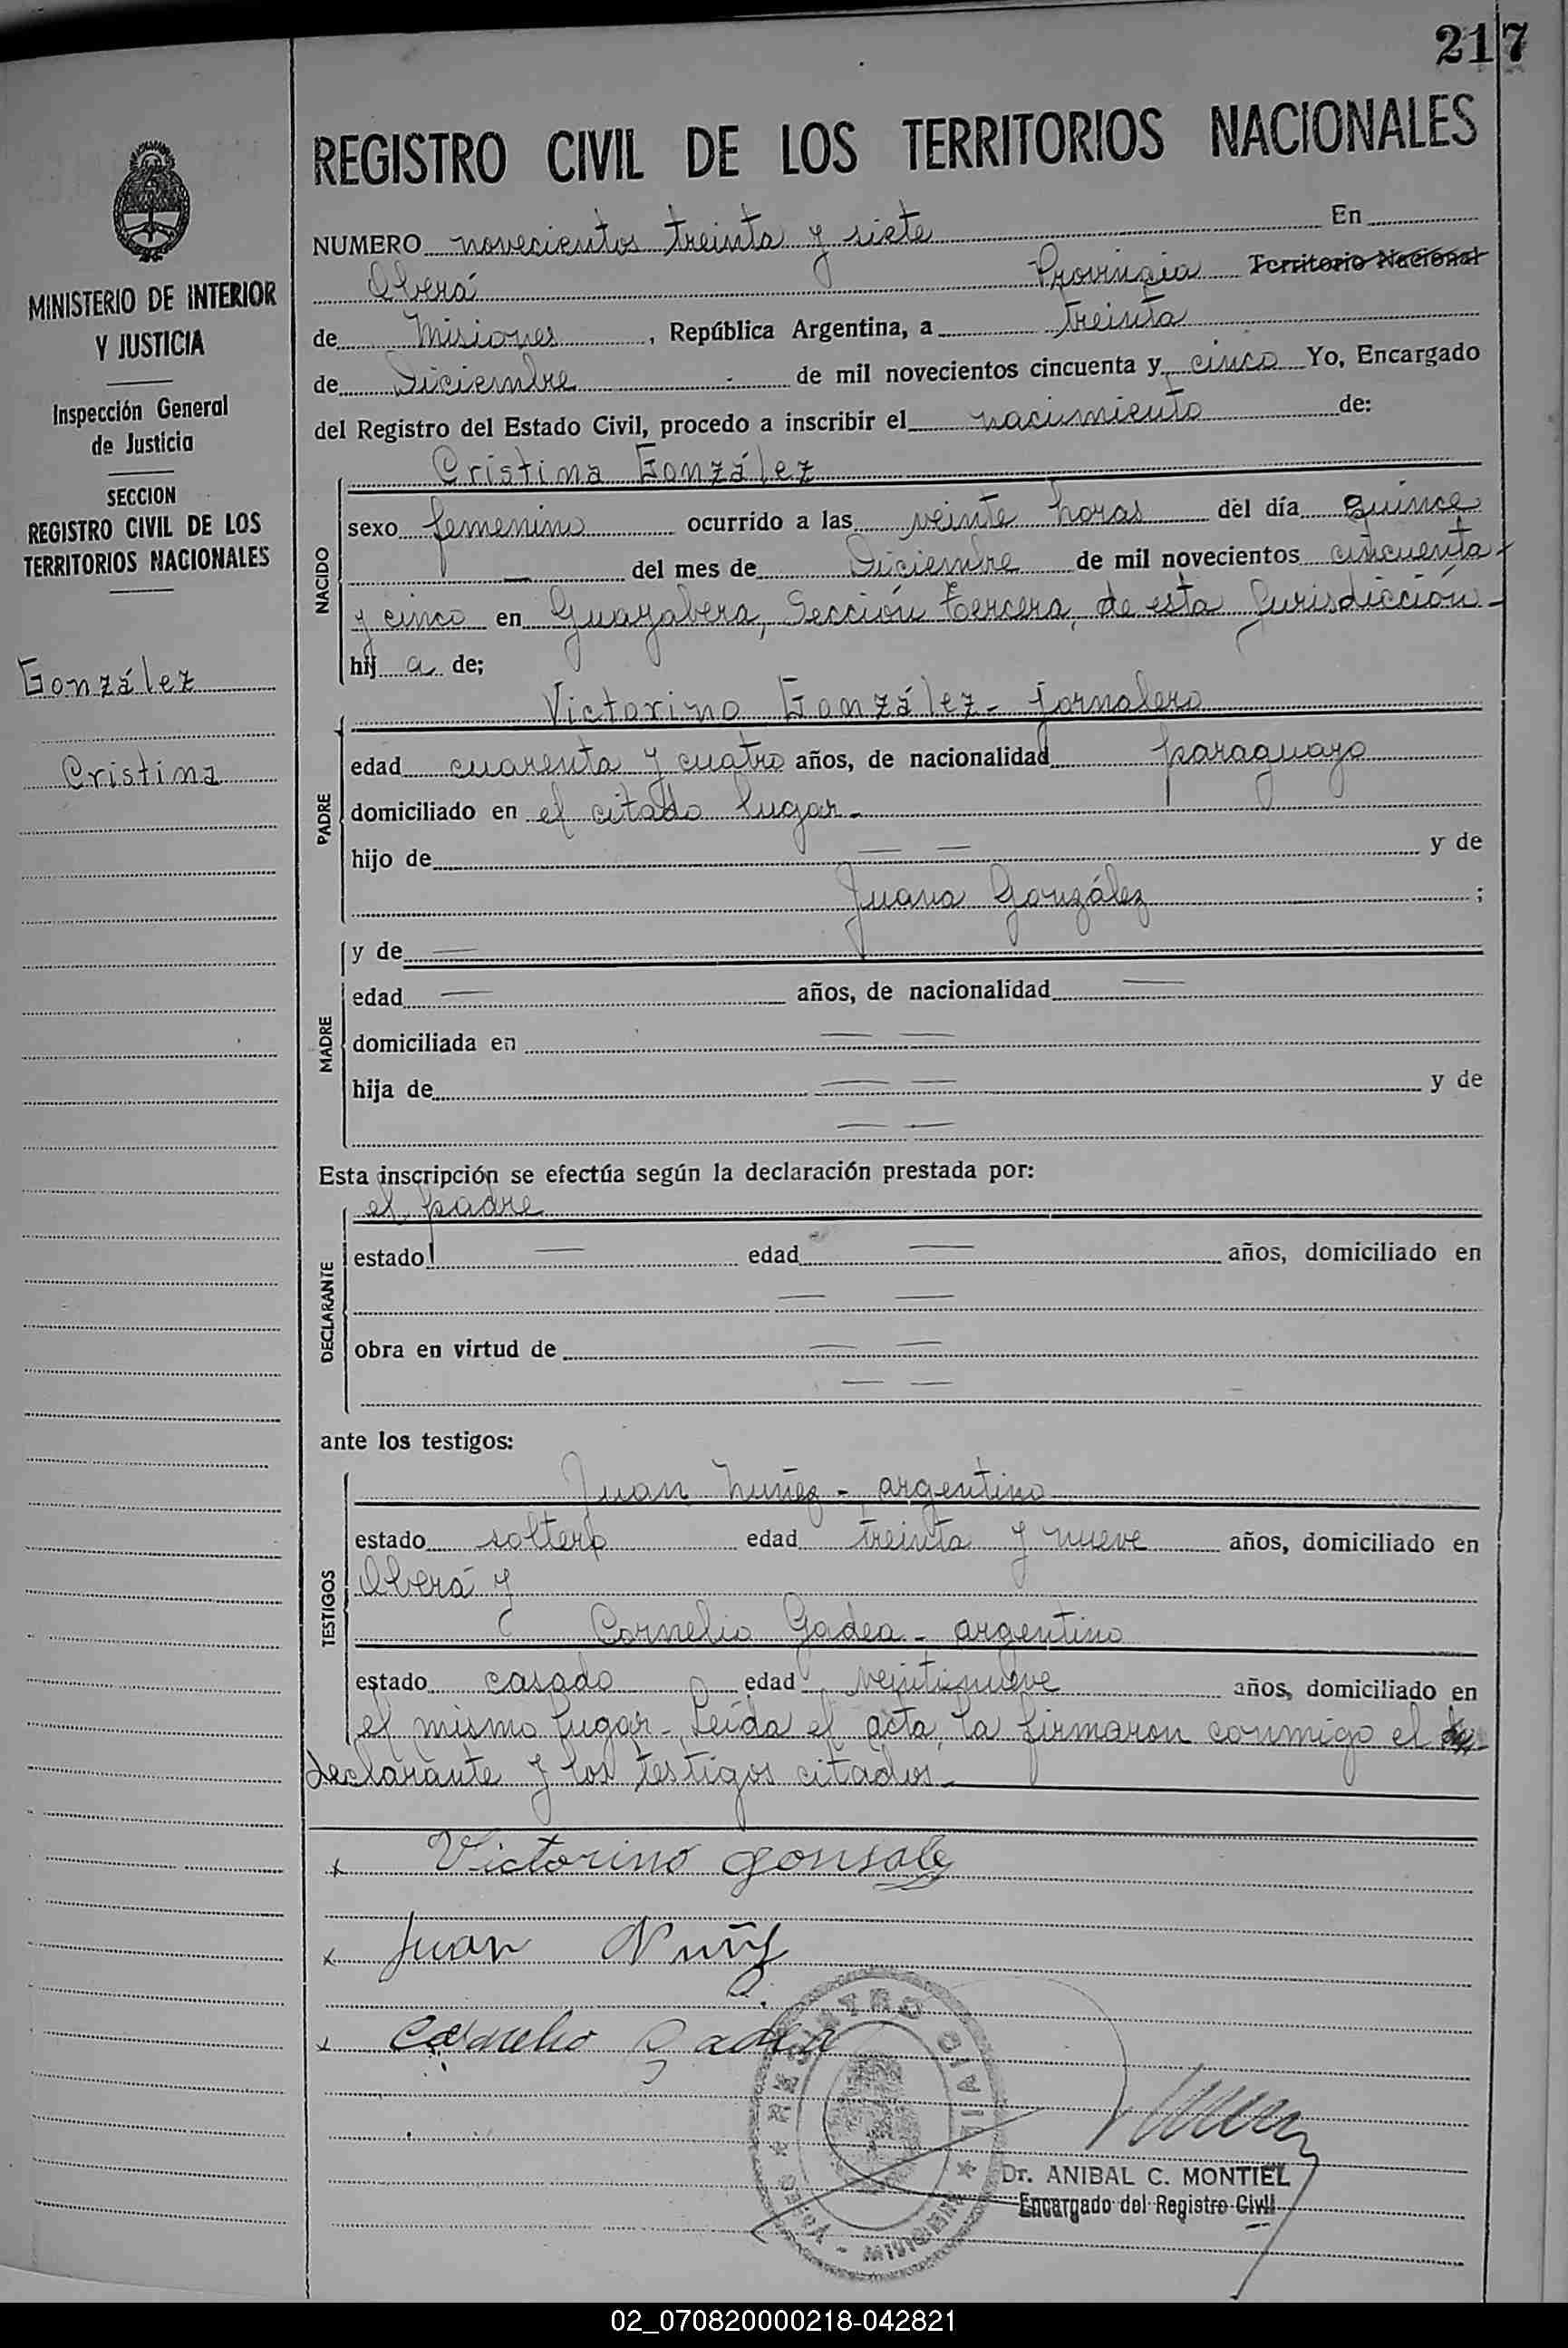 217
REGISTRO CIVIL DE LOS TERRITORIOS NACIONALES
MINISTERIO DE INTERIOR
Y JUSTICIA
Inspección General
de Justicia
SECCION
REGISTRO CIVIL DE LOS
TERRITORIOS NACIONALES
González
Cristina
NUMERO novecientos treinta y siete En
Oberá Provincia Territorio Nacional
de Misiones, República Argentina, a treinta
de Diciembre de mil novecientos cincuenta y cinco Yo, Encargado
del Registro del Estado Civil, procedo a inscribir el nacimiento de:
NACIDO
Cristina González
sexo femenino ocurrido a las veinte horas del día quince
— del mes de Diciembre de mil novecientos cincuenta
y cinco en Guayabera, Sección tercera, de esta Jurisdicción-
hij a de;
PADRE
Victorino González- Jornalero
edad cuarenta y cuatro años, de nacionalidad paraguayo
domiciliado en el citado lugar-
hijo de — — y de
Juana González ;
MADRE
y de —
edad — años, de nacionalidad —
domiciliada en — —
hija de — — y de
— —
Esta inscripción se efectúa según la declaración prestada por:
DECLARANTE
el padre
estado — edad — años, domiciliado en
— —
obra en virtud de — —
— —
ante los testigos:
TESTIGOS
Juan Nuñez - argentino
estado soltero edad treinta y nueve años, domiciliado en
Oberá y
Cornelio Gadea - argentino
estado casado edad veintinueve años, domiciliado en
el mismo lugar- Leída el acta, la firmaron conmigo el
declarante y los testigos citados-
x Victorino gonsalez
x Juan Nuñez
x Cornelio Gadea
REGISTRO CIVIL
OBERA - MISIONES
Dr. ANIBAL C. MONTIEL
Encargado del Registro Civil
02_070820000218-042821